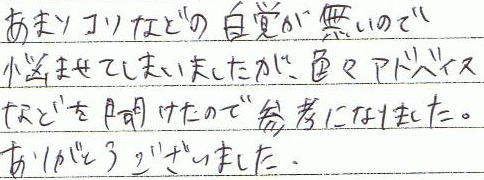 あまりコリなどの自覚が無いので
悩ませてしまいましたが、色々アドバイス
などを聞けたので参考になりました。
ありがとうございました.